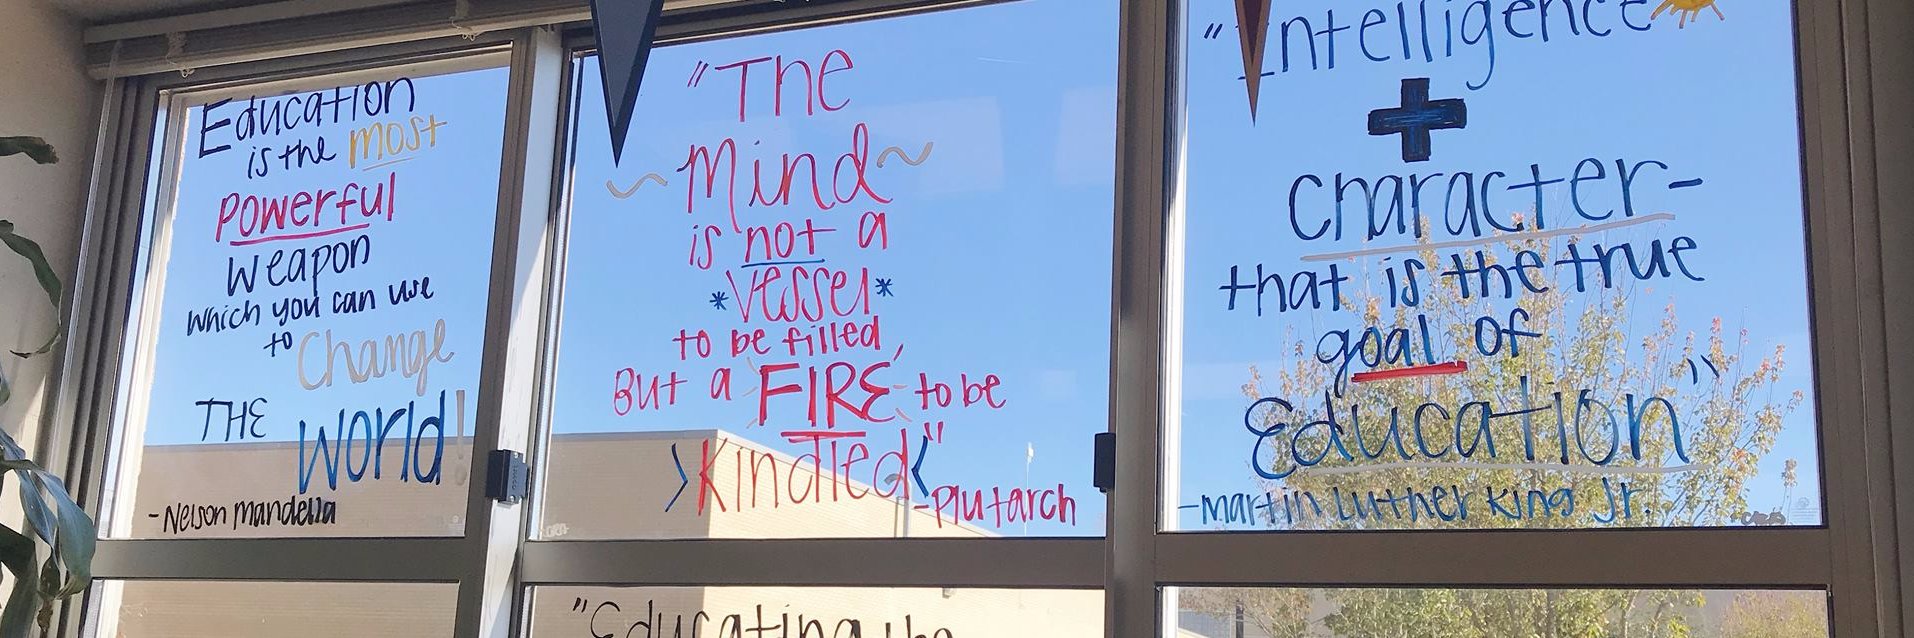 Education
is the most
powerful
weapon
which you can use
to Change
THE World!
-Nelson Mandella
"The
Mind
is not a
*Vessel*
to be filled
But a FIRE to be
Kindled"
-Plutarch
"Intelligence
+
Character-
that is the true
goal of
Education"
-Martin Luther King Jr.
"Educating the